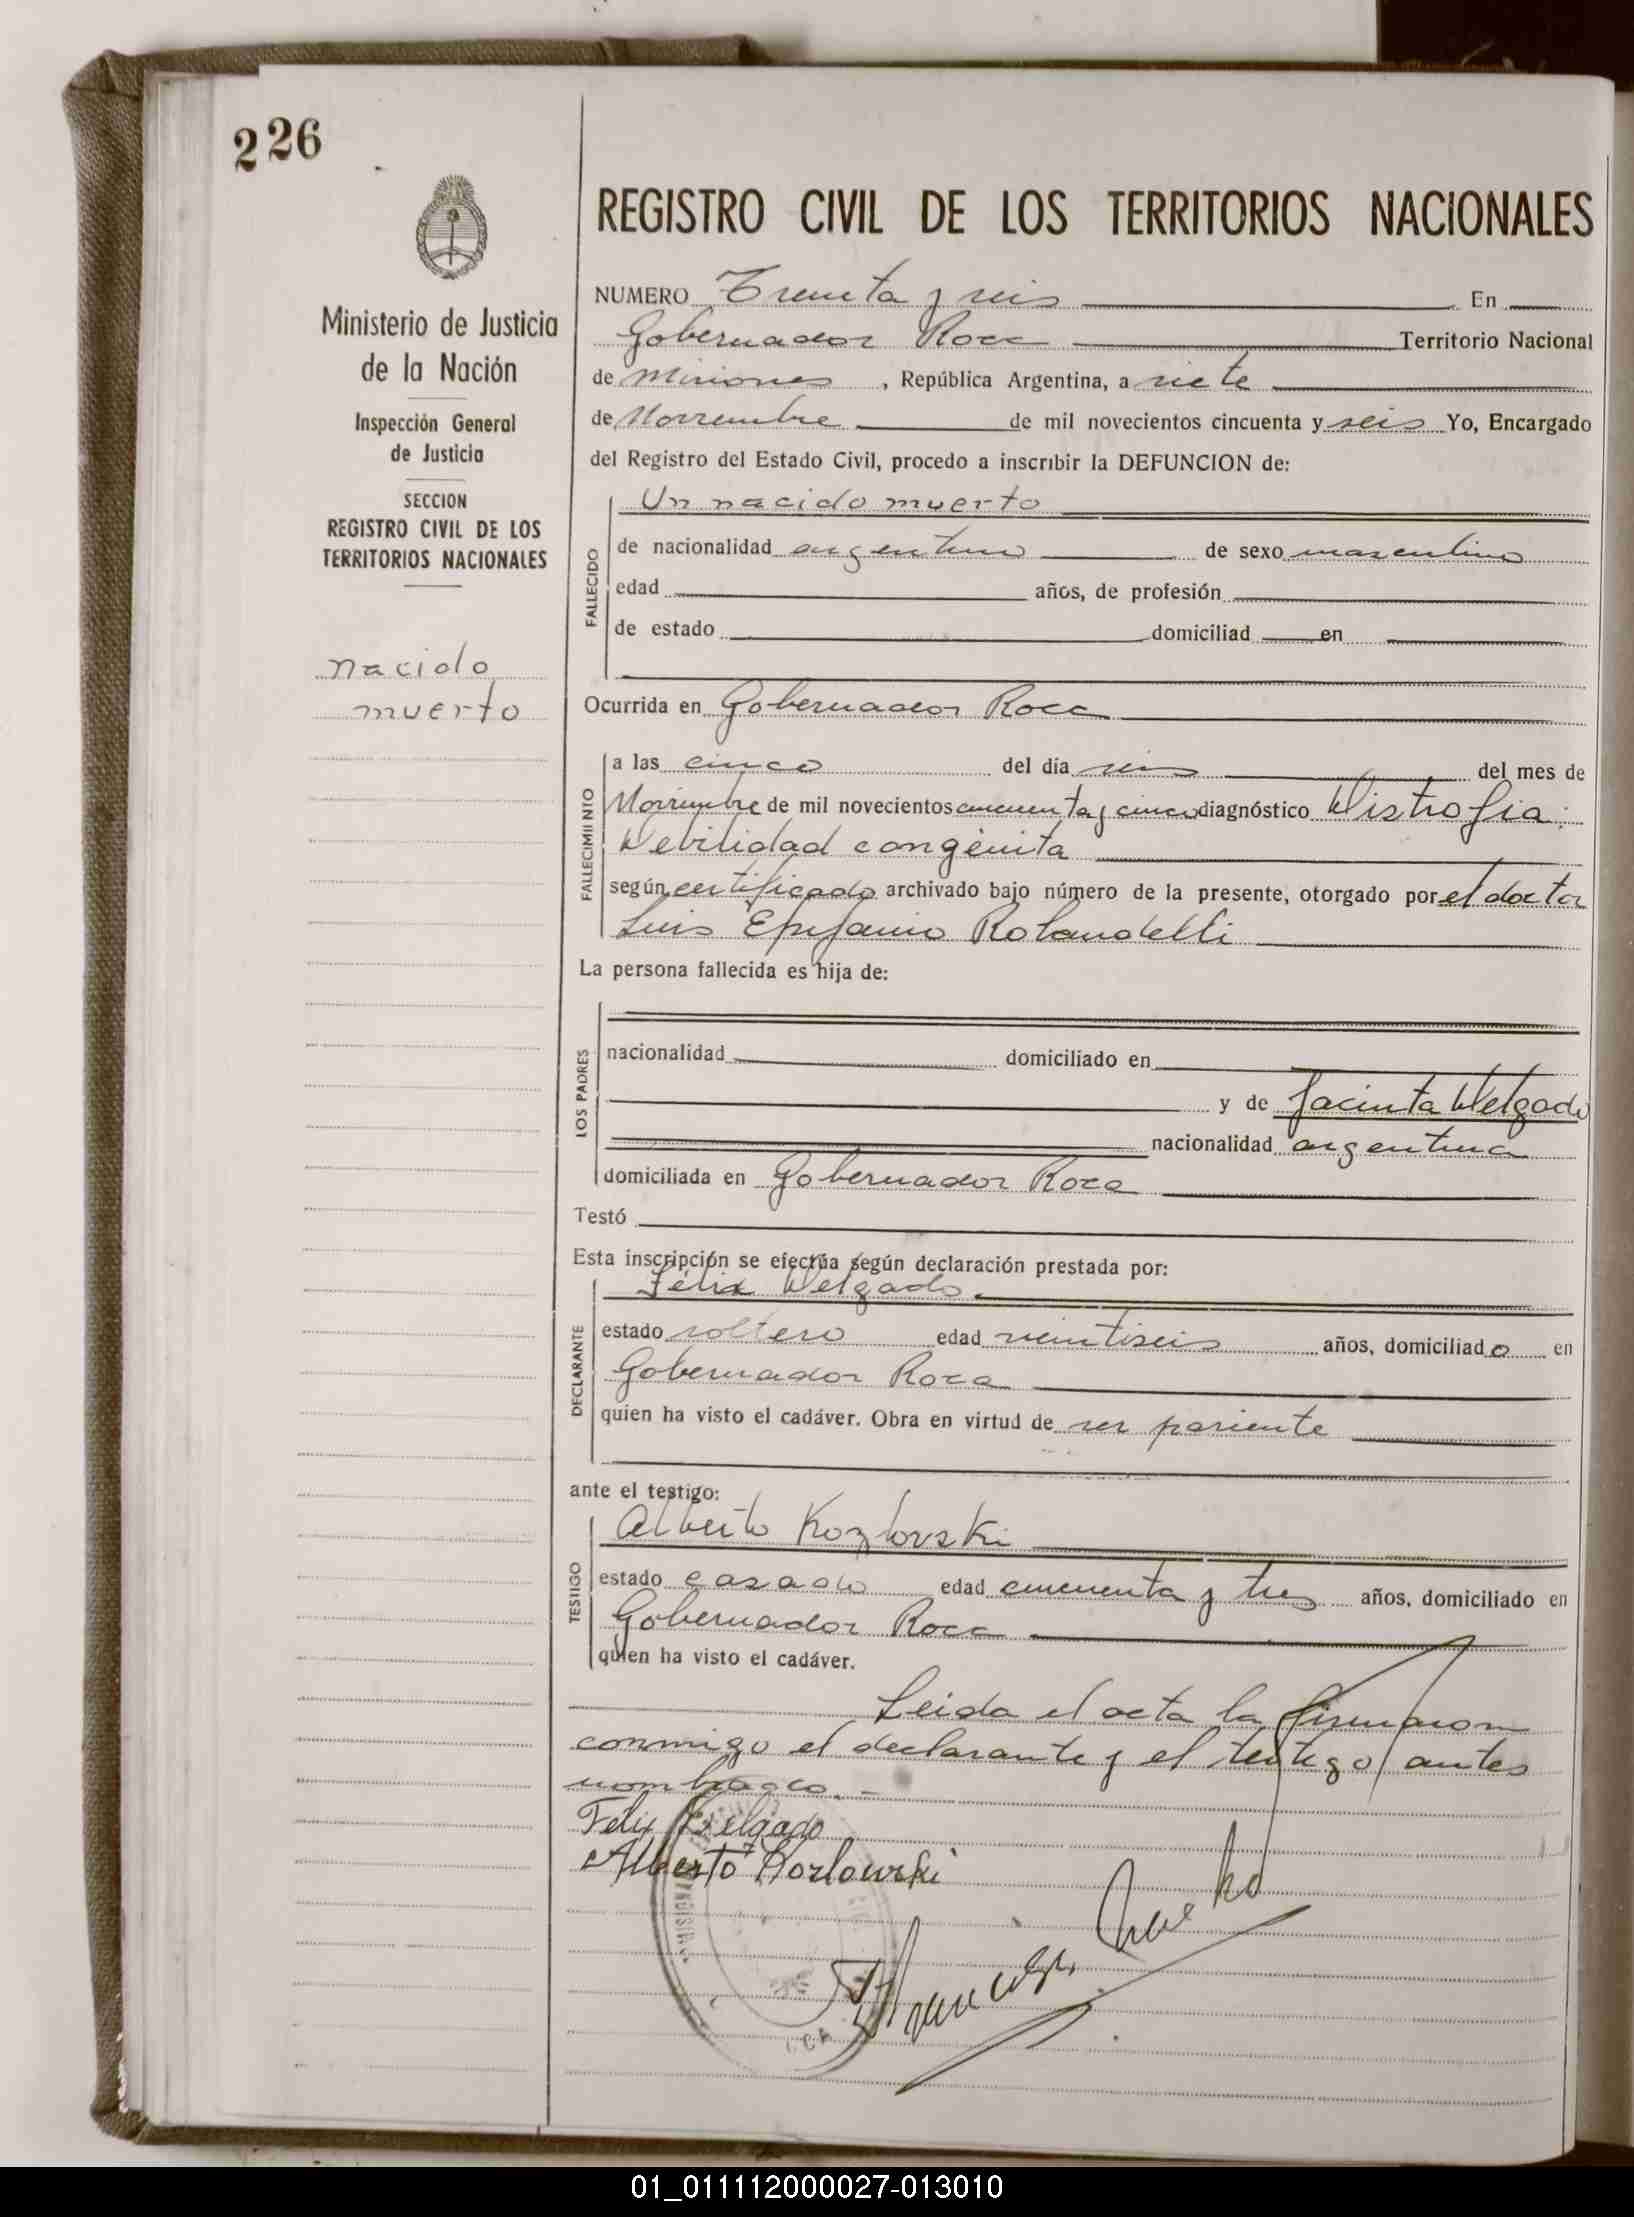 226
Ministerio de Justicia
de la Nación
Inspección General
de Justicia
SECCION
REGISTRO CIVIL DE LOS
TERRITORIOS NACIONALES
nacido
muerto
REGISTRO CIVIL DE LOS TERRITORIOS NACIONALES
NUMERO Treinta y seis En
Gobernador Roca Territorio Nacional
de Misiones , República Argentina, a siete
de Noviembre de mil novecientos cincuenta y seis Yo, Encargado
del Registro del Estado Civil, procedo a inscribir la DEFUNCION de:
Un nacido muerto
FALLECIDO
de nacionalidad argentino de sexo masculino
edad años, de profesión
de estado domiciliad en
Ocurrida en Gobernador Roca
FALLECIMIENTO
a las cinco del día seis del mes de
Noviembre de mil novecientos cincuenta y cinco diagnóstico Distrofia:
Debilidad congénita
según certificado archivado bajo número de la presente, otorgado por el doctor
Luis Epifanio Rolandelli
La persona fallecida es hija de:
LOS PADRES
nacionalidad domiciliado en
y de Jacinta Delgado
nacionalidad argentina
domiciliada en Gobernador Roca
Testó
Esta inscripción se efectúa según declaración prestada por:
Félix Delgado.
DECLARANTE
estado soltero edad veintiseis años, domiciliado en
Gobernador Roca
quien ha visto el cadáver. Obra en virtud de ser pariente
ante el testigo:
Alberto Kozlovski
TESTIGO
estado casado edad cincuenta y tres años, domiciliado en
Gobernador Roca
quien ha visto el cadáver.
Leida el acta la firmaron
conmigo el declarante y el testigo antes
nombrado.-
Felix Delgado
Alberto Kozlowski
01_011112000027-013010